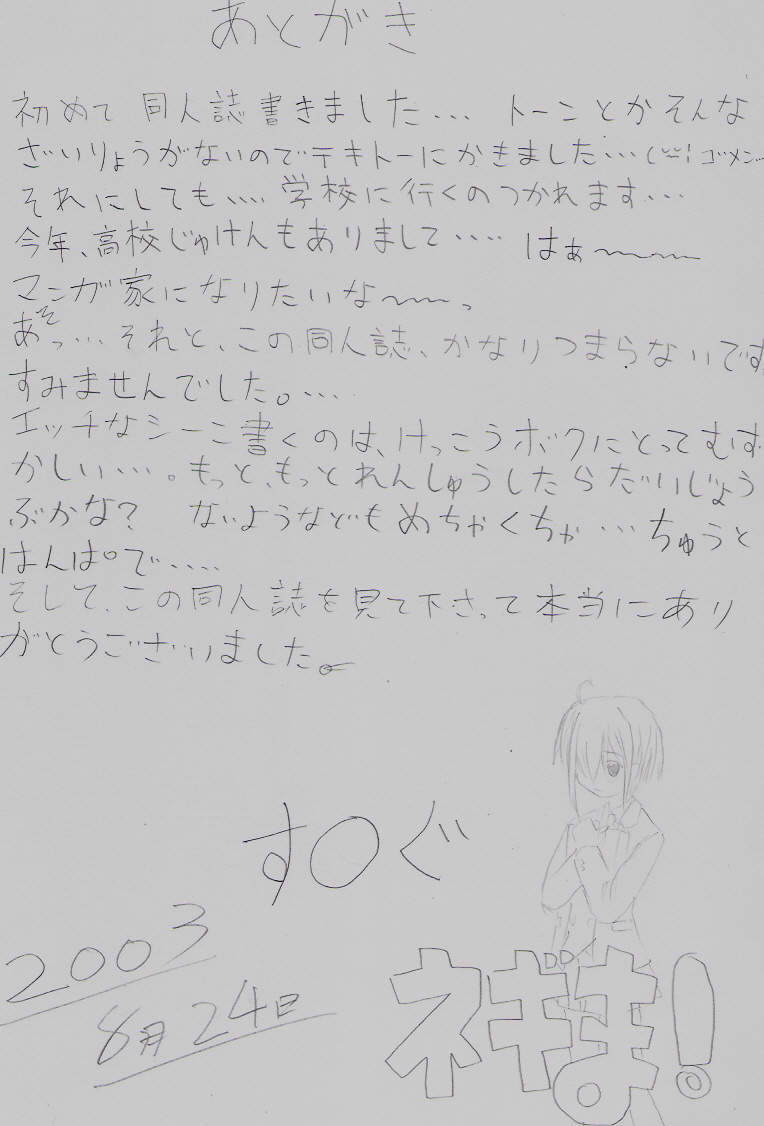 あとがき
初めて 同人誌書きました… トーンとかそんな
ざいりょうがないのでテキトーにかきました…(ーー! ゴメン…
それにしても…… 学校に行くのつかれます…
今年、高校じゅけんもありまして…. はぁ～～～
マンガ家になりたいな～～。
あそっ…それと、この同人誌、かなりつまらないです
すみませんでした。…
エッチなシーン書くのは、けっこうボクにとってむず
かしい…。もっと、もっとれんしゅうしたらだいじょう
ぶかな? ないようなどもめちゃくちゃ…ちゅうと
はんぱで…..
そして、この同人誌を見て下さって本当にあり
がとうございました。
す○ぐ
2003
8月24日
ネギま!